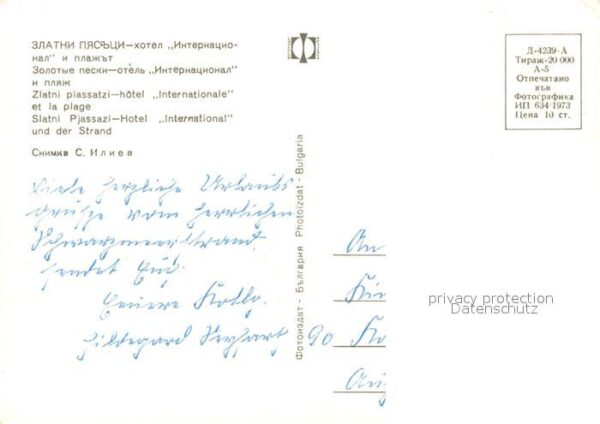 ЗЛАТНИ ПЯСЪЦИ—хотел „Интернацио-
нал" и плажът
Золотые пески—отель „Интернационал"
и пляж
Zlatni piassatzi—hôtel „Internationale"
et la plage
Slatni Pjassazi-Hotel „International"
und der Strand
Снимка С. Илиев
Д-4239-А
Тираж-20 000
А-5
Отпечатано
във
Фотографика
ИП 634/1973
Цена 10 ст.
Фотоиздат - България Photoizdat - Bulgaria
Viele herzliche Urlaubs
grüße vom herrlichen
Schwarzmeerstrand
sendet Euch
Hildegard
An
90
privacy protection
Datenschutz